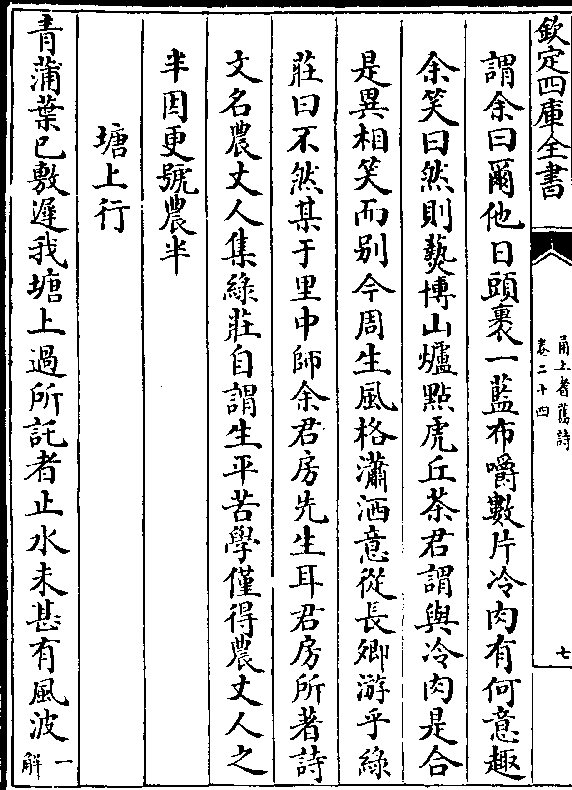 欽定四庫全書
甬上耆舊詩
卷二十四
七
謂余曰爾他日頭裹一藍布嚼數片冷肉有何意趣
余笑曰然則爇博山爐點虎丘茶君謂與冷肉是合
是異相笑而别今周生風格瀟洒意從長卿游乎綠
莊曰不然某于里中師余君房先生耳君房所著詩
文名農丈人集綠莊自謂生平苦學僅得農丈人之
半因更號農半
塘上行
青蒲葉已敷遲我塘上過所託者止水未甚有風波一解